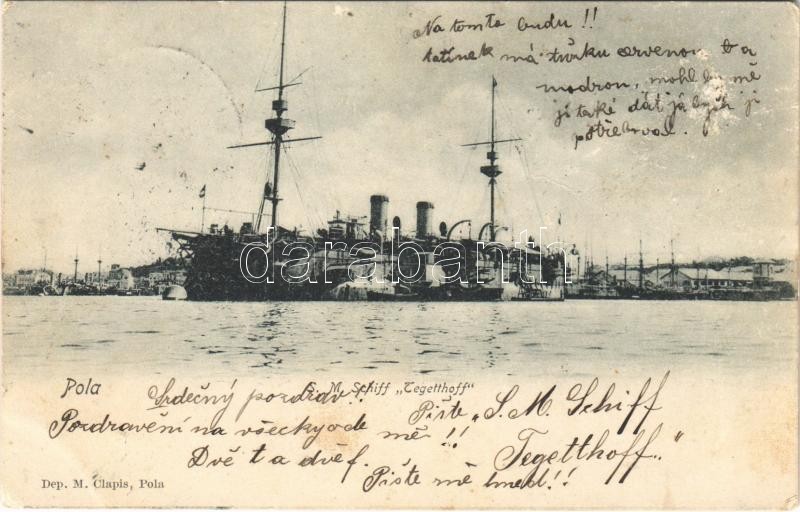 Na tomto budu !!
tatínek má tužku červenou t a
modrou, mohl by mě
ji také dát já bych ji
potřeboval.
darabanth
Pola
S. M. Schiff „Tegetthoff"
Srdečný pozdrav !!
Pozdravení na všecky ode mě !!
Dvě t a dvě f.
Pište „S. M. Schiff
Tegetthoff."
Pište mě hned !!
Dep. M. Clapis, Pola